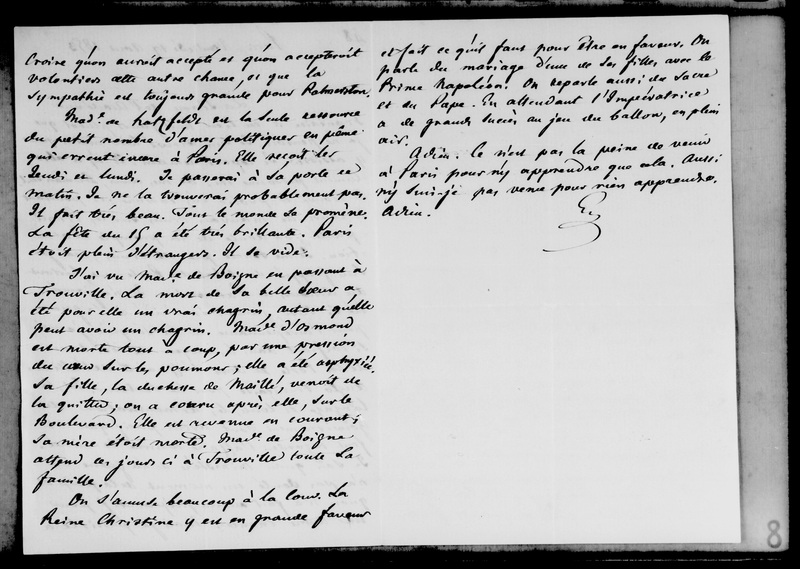 Croire qu'on auroit accepté et qu'on accepteroit
volontiers cette autre chance, et que la
sympathie est toujours grande pour Palmerston.
Made. de Hatzfeldt est la seule ressource
du petit nombre d'ames politiques en peine
qui errent encore à Paris. Elle reçoit les
Jeudi et lundi. Je passerai à sa porte ce
matin. Je ne la trouverai probablement pas.
Il fait très beau. Tout le monde se promène.
La fête du 15 a été très brillante. Paris
étoit plein d'étrangers. Il se vide.
J'ai vu Made. de Boigne en passant à
Trouville. La mort de sa belle sœur a
été pour elle un vrai chagrin, autant qu'elle
peut avoir un chagrin. Made. d'Osmond
est morte tout à coup, par une pression
du cœur sur les poumons ; elle a été asphyxiée.
Sa fille, la duchesse de Maillé, venoit de
la quitter ; on a couru après elle, sur le
Boulevard. Elle est revenue en courant ;
sa mère étoit morte. Made. de Boigne
attend ces jours ci à Trouville toute la
famille.
On s'amuse beaucoup à la cour. La
Reine Christine y est en grande faveur
et fait ce qu'il faut pour être en faveur. On
parle du mariage d'une de ses filles avec le
Prince Napoléon. On reparle aussi du Sacre
et du Pape. En attendant l'Impératrice
a de grands succès au jeu du ballon, en plein
air.
Adieu. Ce n'est pas la peine de venir
à Paris pour n'y apprendre que cela. Aussi
n'y suis-je pas venu pour rien apprendre.
Adieu.
G
8